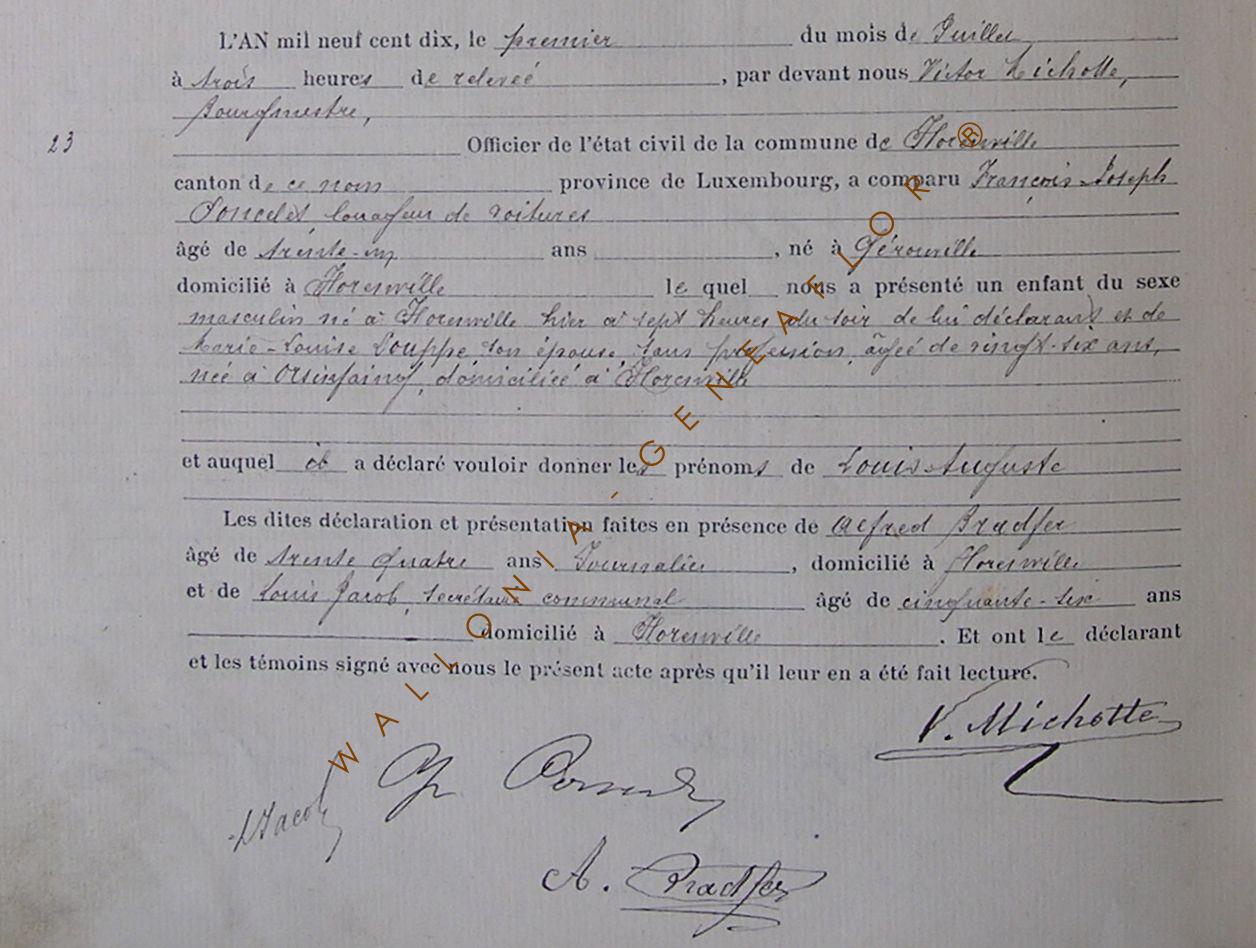 L'AN mil neuf cent dix, le premier du mois de Juillet
à trois heures de relevée, par devant nous Victor Michotte,
Bourgmestre,
23
Officier de l'état civil de la commune de Florenville
canton de ce nom province de Luxembourg, a comparu François-Joseph
Poncelet louageur de voitures
âgé de trente-un ans, né à Gérouville
domicilié à Florenville lequel nous a présenté un enfant du sexe
masculin né à Florenville hier à sept heures du soir de lui déclarant et de
Marie-Louise Louppe, son épouse, sans profession, âgée de vingt-six ans,
née à Orsinfaing, domiciliée à Florenville
et auquel il a déclaré vouloir donner les prénoms de Louis-Auguste
Les dites déclaration et présentation faites en présence de Alfred Bradfer
âgé de trente quatre ans Journalier, domicilié à Florenville
et de Louis Jacob, secrétaire communal âgé de cinquante-six ans
domicilié à Florenville. Et ont le déclarant
et les témoins signé avec nous le présent acte après qu'il leur en a été fait lecture.
V. Michotte
L Jacob
A. Bradfer
WALLONIA-GENEAFLOR®